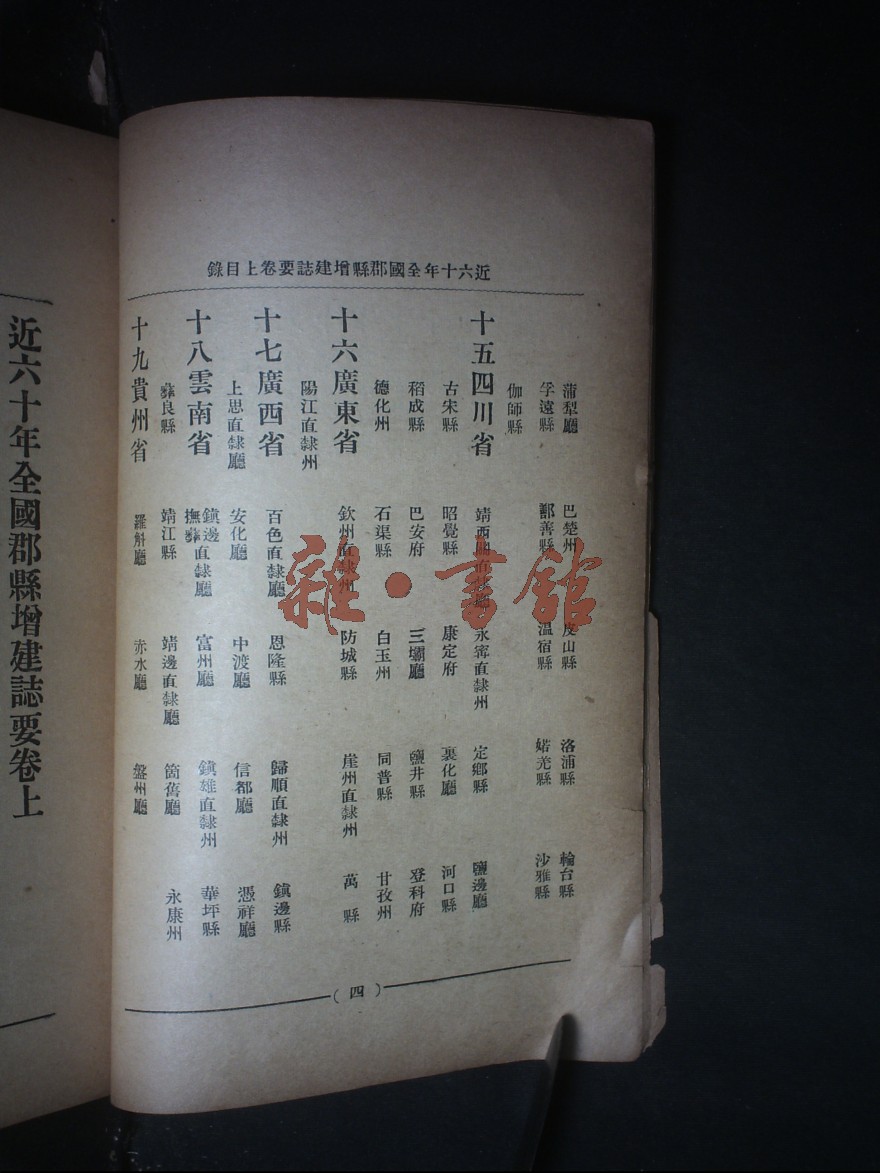 近六十年全國郡縣增建誌要卷上目錄
蒲犁廳 巴楚州 皮山縣 洛浦縣 輪台縣
孚遠縣 鄯善縣 溫宿縣 婼羌縣 沙雅縣
伽師縣
十五四川省 靖西關直隸廳 永寧直隸州 定鄉縣 鹽邊廳
古朱縣 昭覺縣 康定府 裏化廳 河口縣
稻成縣 巴安府 三壩廳 鹽井縣 登科府
德化州 石渠縣 白玉州 同普縣 甘孜州
十六廣東省 欽州直隸州 防城縣 崖州直隸州 萬縣
陽江直隸州
十七廣西省 百色直隸廳 恩隆縣 歸順直隸州 鎮邊縣
上思直隸廳 安化廳 中渡廳 信都廳 憑祥廳
十八雲南省 鎮邊撫彝直隸廳 富州廳 鎮雄直隸州 華坪縣
彝良縣 靖江縣 靖邊直隸廳 箇舊廳 永康州
十九貴州省 羅斛廳 赤水廳 盤州廳
(四)
近六十年全國郡縣增建誌要卷上
雜·書館